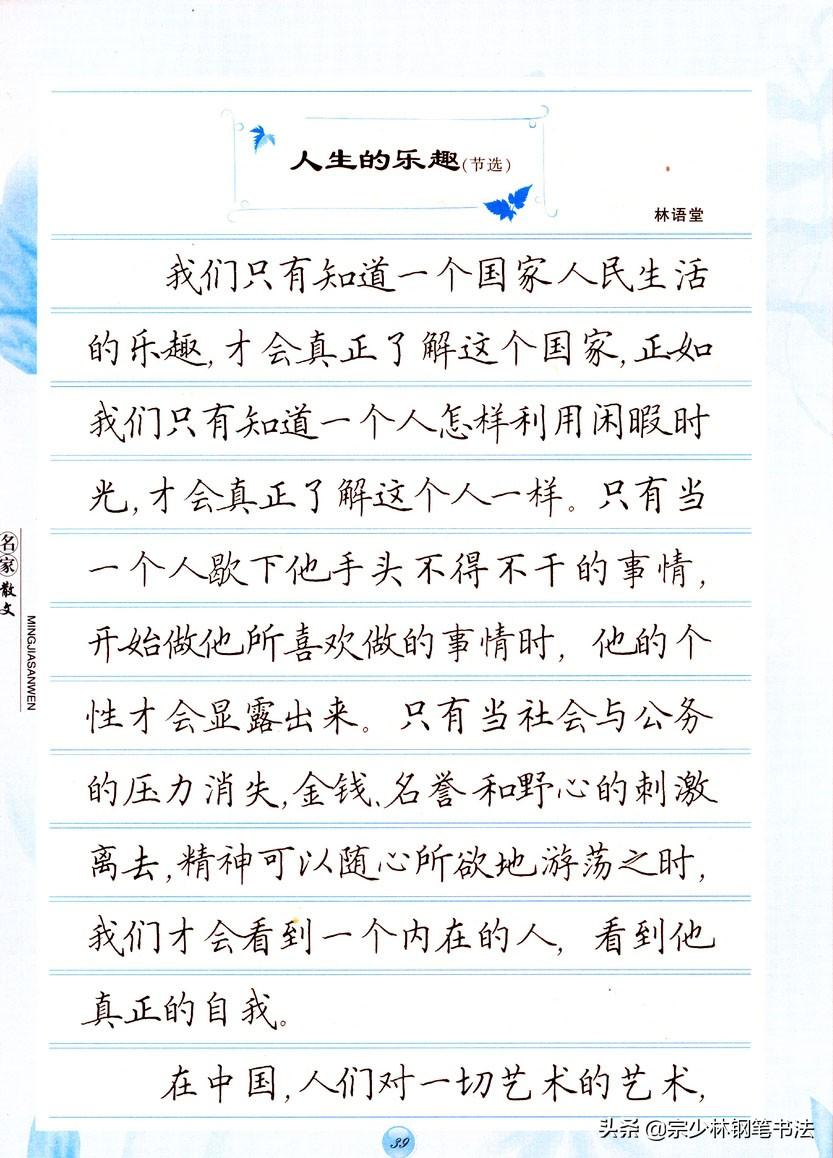 人生的乐趣(节选)
林语堂
我们只有知道一个国家人民生活
的乐趣,才会真正了解这个国家,正如
我们只有知道一个人怎样利用闲暇时
光,才会真正了解这个人一样。只有当
一个人歇下他手头不得不干的事情,
开始做他所喜欢做的事情时,他的个
性才会显露出来。只有当社会与公务
的压力消失,金钱、名誉和野心的刺激
离去,精神可以随心所欲地游荡之时,
我们才会看到一个内在的人,看到他
真正的自我。
在中国,人们对一切艺术的艺术,
名家散文
MINGJIASANWEN
39
头条 @宗少林钢笔书法